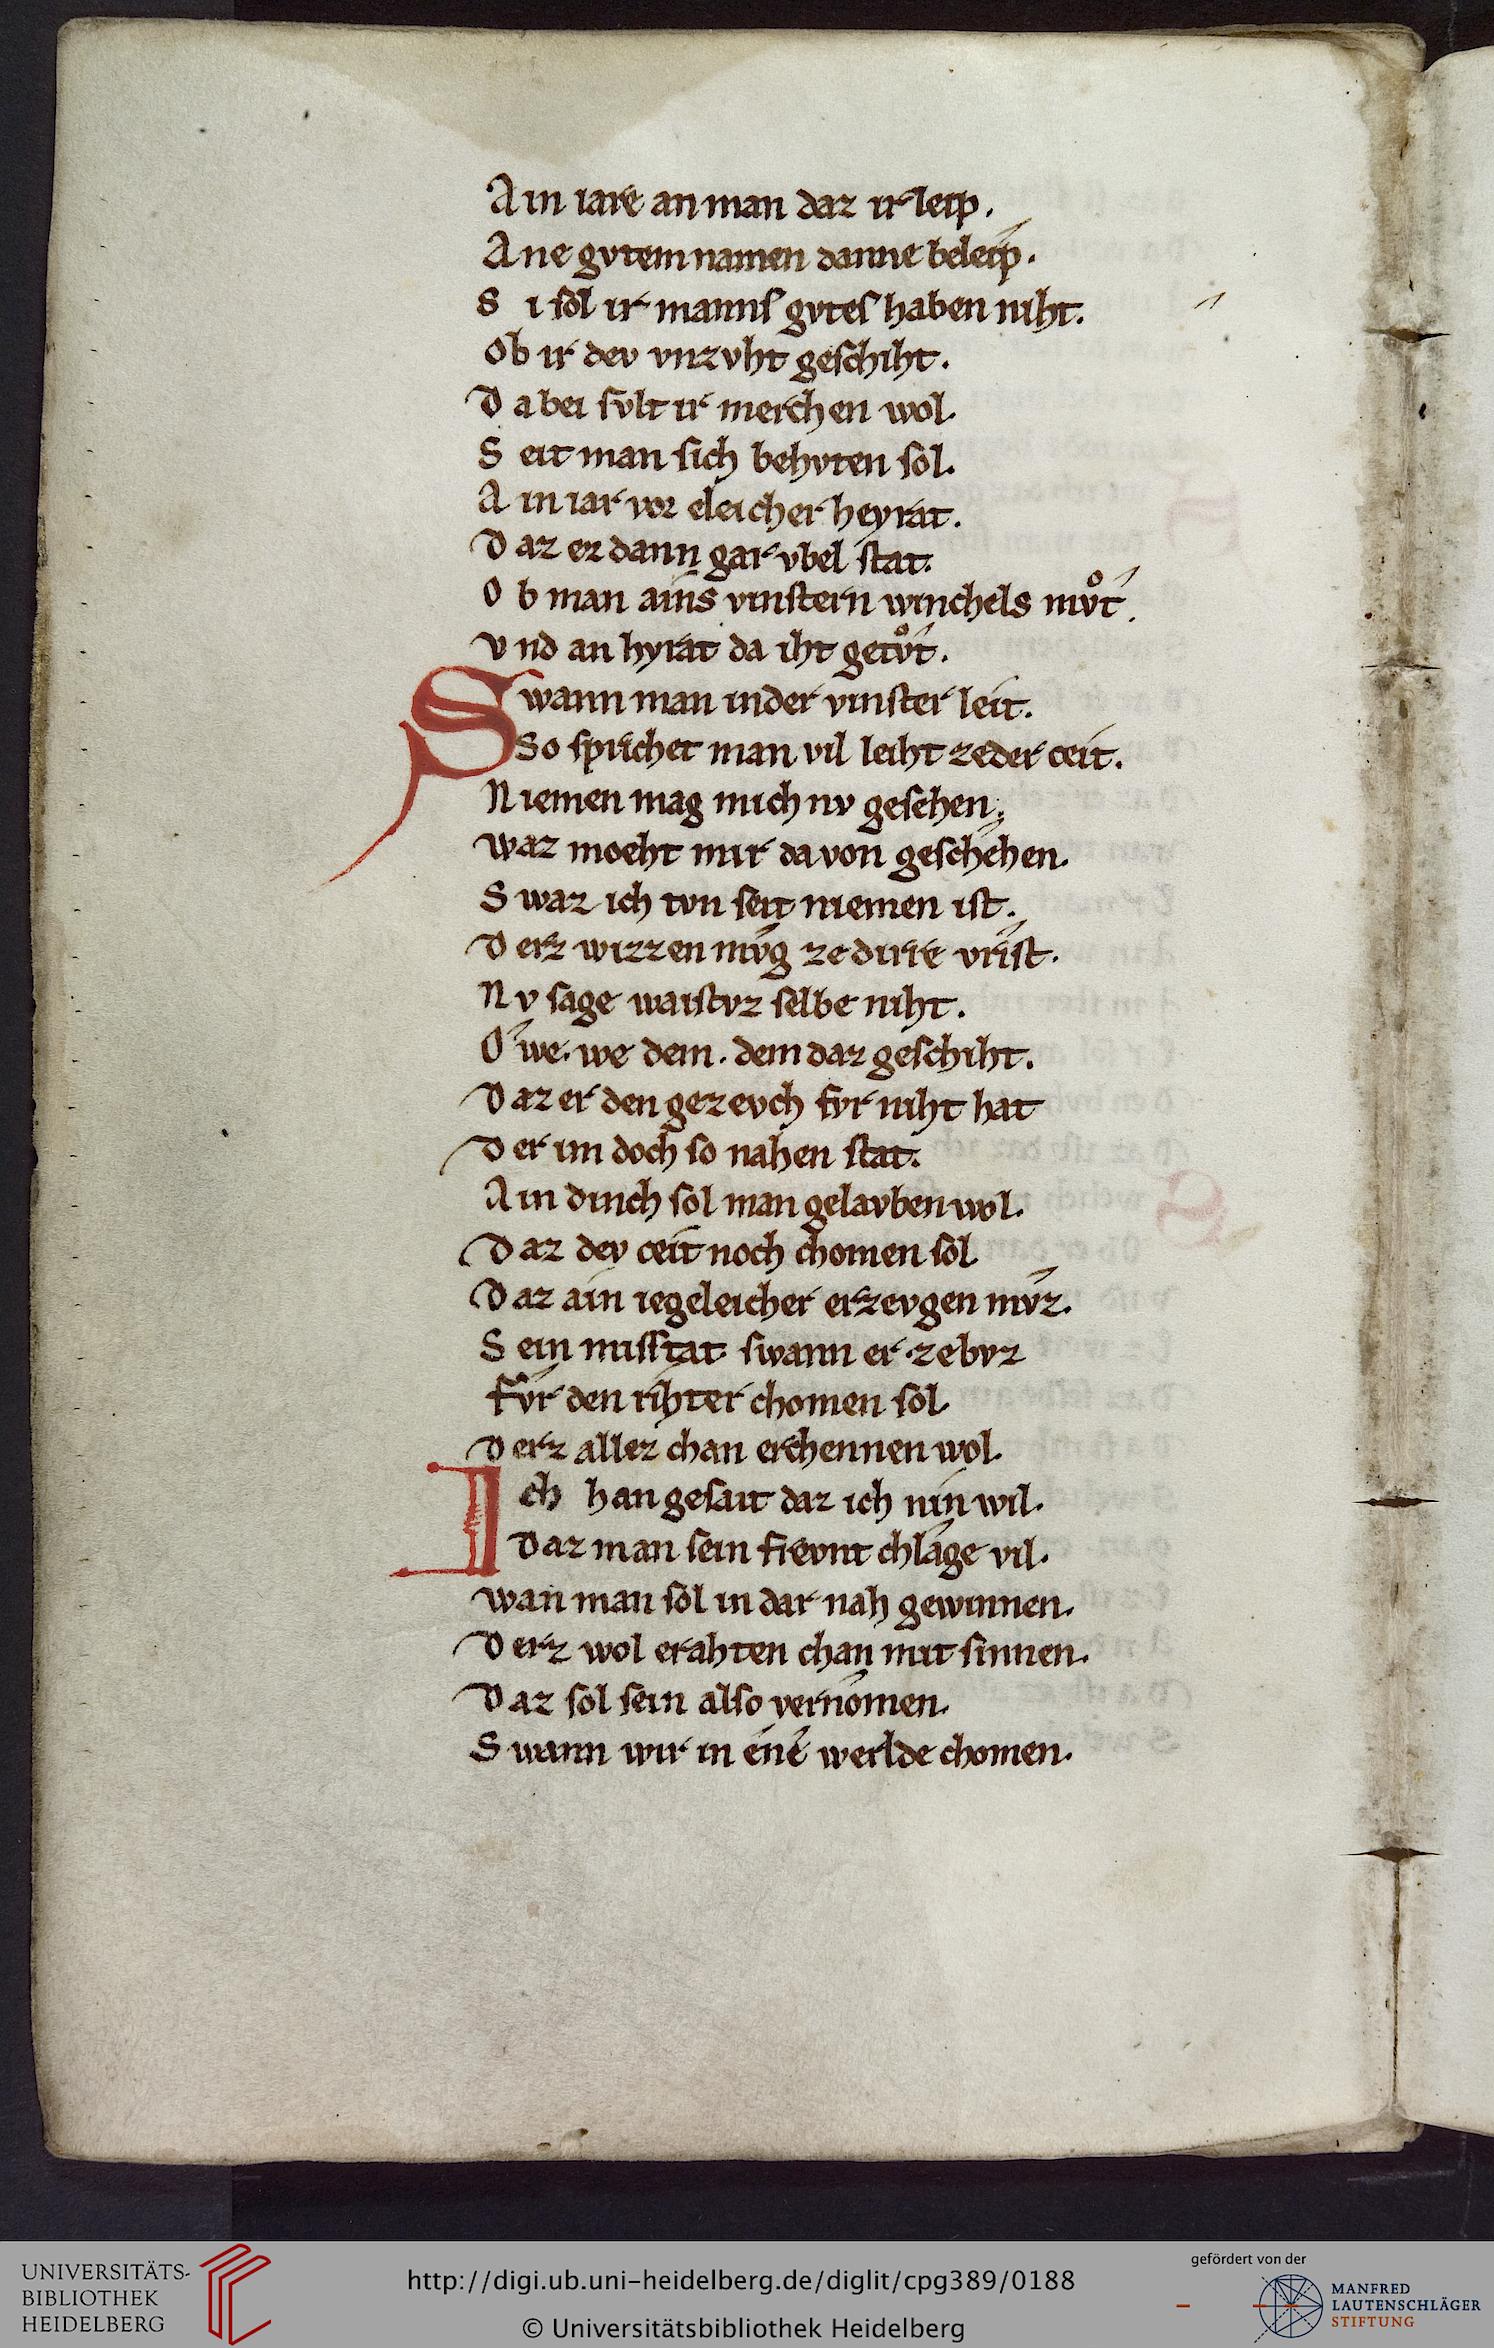 Ain iare an man daz ir leip.
Ane gvtem namen danne beleip.
Si sol ir manns gvtes haben niht.
Ob ir dev vnzvht geschiht.
Dabei svlt ir merchen wol.
Seit man sich behvten sol.
Ain iar vor eleicher heyrat.
Daz ez dann gar vbel stat.
Ob man ains vinstern winchels mvͦt.
Vnd an hyrat da iht getvͦt.
Swann man inder vinster leit.
So sprichet man vil leiht zeder ceit.
Niemen mag mich nv gesehen.
Waz moeht mir davon geschehen.
Swaz ich tvn seit niemen ist.
Derz wizzen mvg zedirre vrist.
Nv sage waistvz selbe niht.
Owe. we dem. dem daz geschiht.
Daz er den gezevch fvr niht hat
Der im doch so nahen stat.
Ain dinch sol man gelavben wol.
Daz dev ceit noch chomen sol
Daz ain iegeleicher erzevgen mvz.
Sein misstat swann er zebvz
Fvr den rihter chomen sol.
Derz allez chan erchennen wol.
Ich han gesait daz ich nin wil.
Daz man sein frevnt chlage vil.
Wan man sol in dar nah gewinnen.
Derz wol erahten chan mit sinnen.
Daz sol sein also vernomen.
Swann wir in ene werlde chomen.
UNIVERSITÄTS-
BIBLIOTHEK
HEIDELBERG
http://digi.ub.uni-heidelberg.de/diglit/cpg389/0188
© Universitätsbibliothek Heidelberg
gefördert von der
MANFRED
LAUTENSCHLÄGER
STIFTUNG